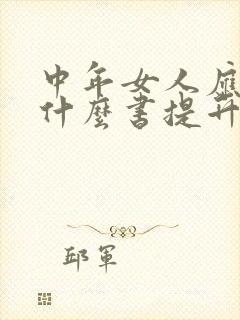 中年女人應
什麼書提升
邱軍